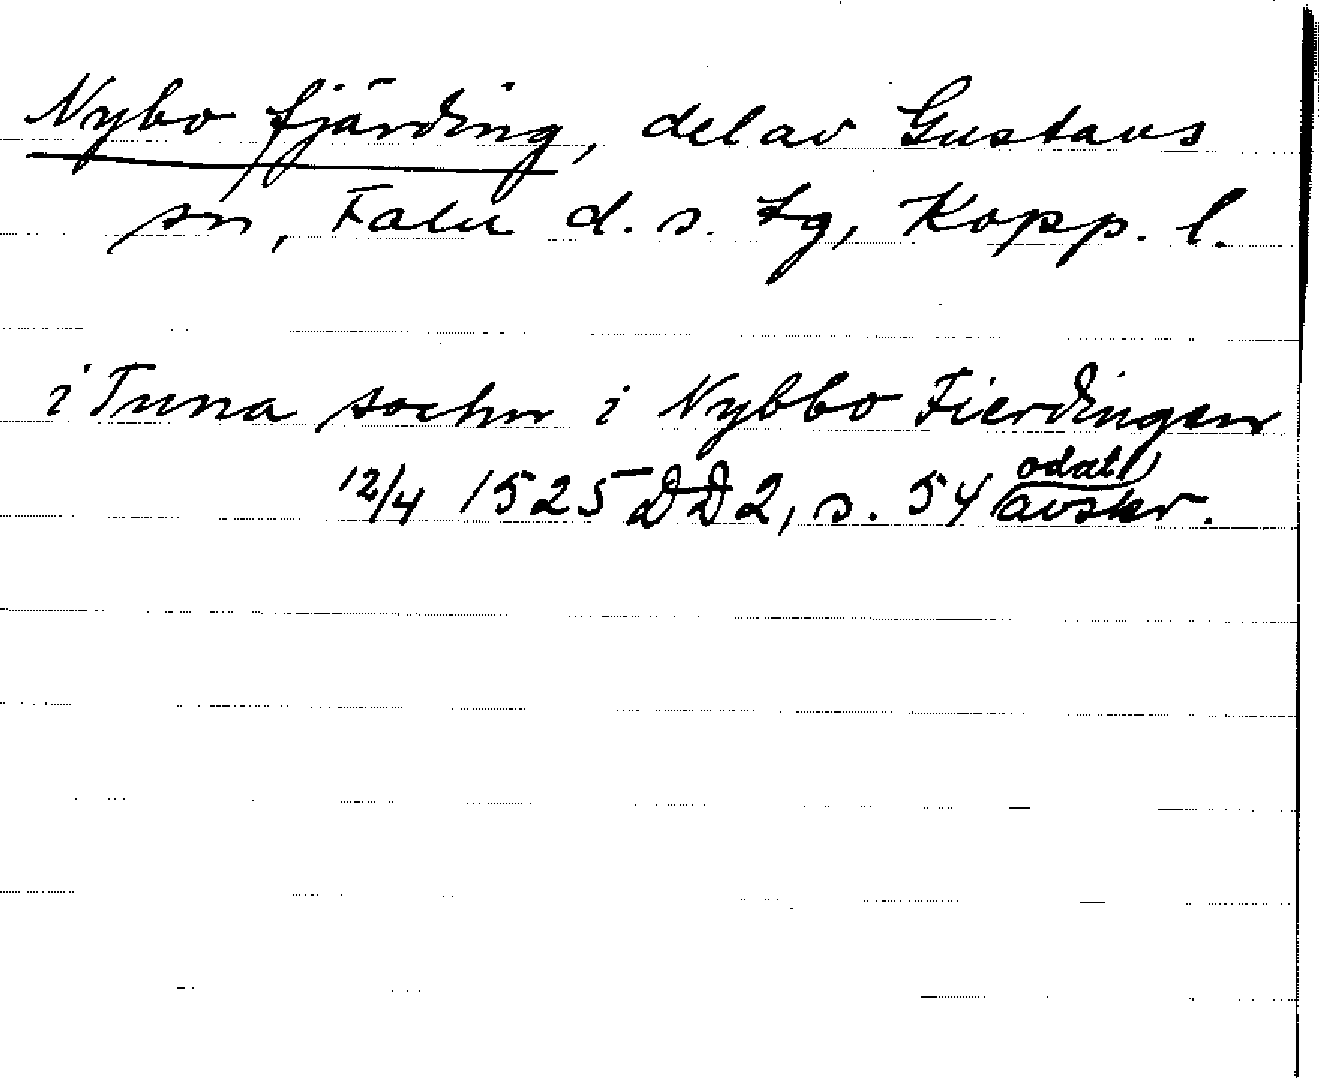 Nybo fjärding, del av Gustavs
sn, Falu d. s. fg, Kopp. l.
i Tuna sochn i Nybbo Fierdingen
12/4 1525 DD2, s. 54 odat.
avskr.